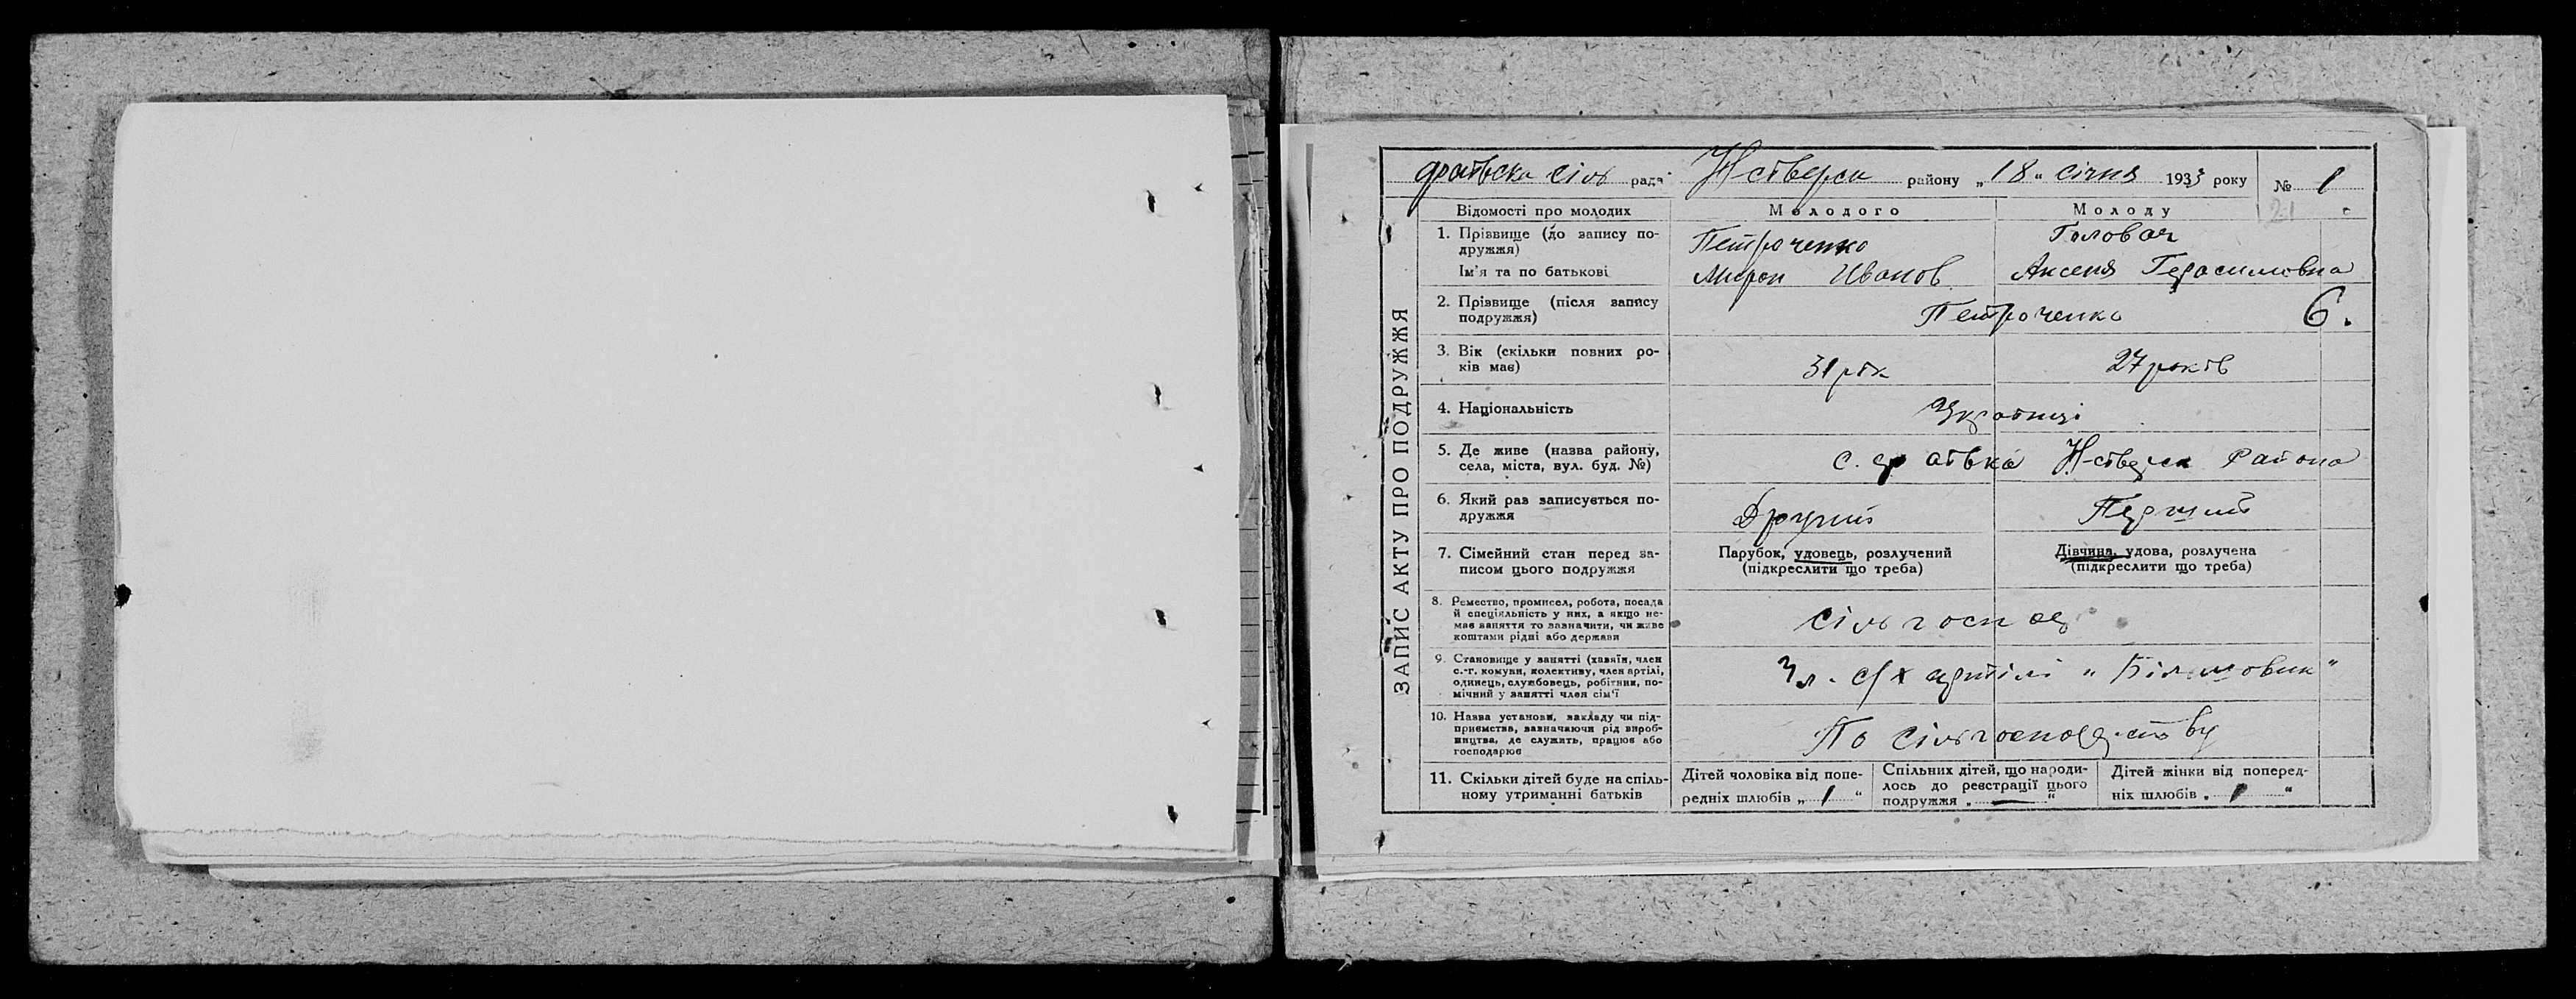 сіль рада Н-сіверск району „18“ січня 1933 року № 1
21
ЗАПИС АКТУ ПРО ПОДРУЖЖЯ
Відомості про молодих Молодого Молоду
1. Прізвище (до запису по-
дружжя) Петроченко Головач
Ім'я та по батькові Мирон Иванов. Аксеня Герасимовна
2. Прізвище (після запису
подружжя) Петроченко 6.
3. Вік (скільки повних ро-
ків має) 31 рік 27 років
4. Національність Українці
5. Де живе (назва району,
села, міста, вул. буд. №) с. Н-сіверск Района
6. Який раз записується по-
дружжя Другий Перший
7. Сімейний стан перед за-
писом цього подружжя
Парубок, удовець, розлучений
(підкреслити що треба)
Дівчина, удова, розлучена
(підкреслити що треба)
8. Ремество, промисел, робота, посада
й спеціяльність у них, а якщо не-
має заняття то зазначити, чи живе
коштами рідні або держави
сільгоспод
9. Становище у занятті (хазяїн, член
с.-г. комуни, колективу, член артілі,
одинець, службовець, робітник, по-
мічний у занятті член сім'ї
Чл. с/х артілі „Більшовик“
10. Назва установи, закладу чи під-
приємства, зазначаючи рід вироб-
ництва, де служить, працює або
господарює
По сільгосподарству
11. Скільки дітей буде на спіль-
ному утриманні батьків
Дітей чоловіка від попе-
редніх шлюбів „ 1 “
Спільних дітей, що народи-
лось до реєстрації цього
подружжя „ — “
Дітей жінки від поперед-
ніх шлюбів „ “